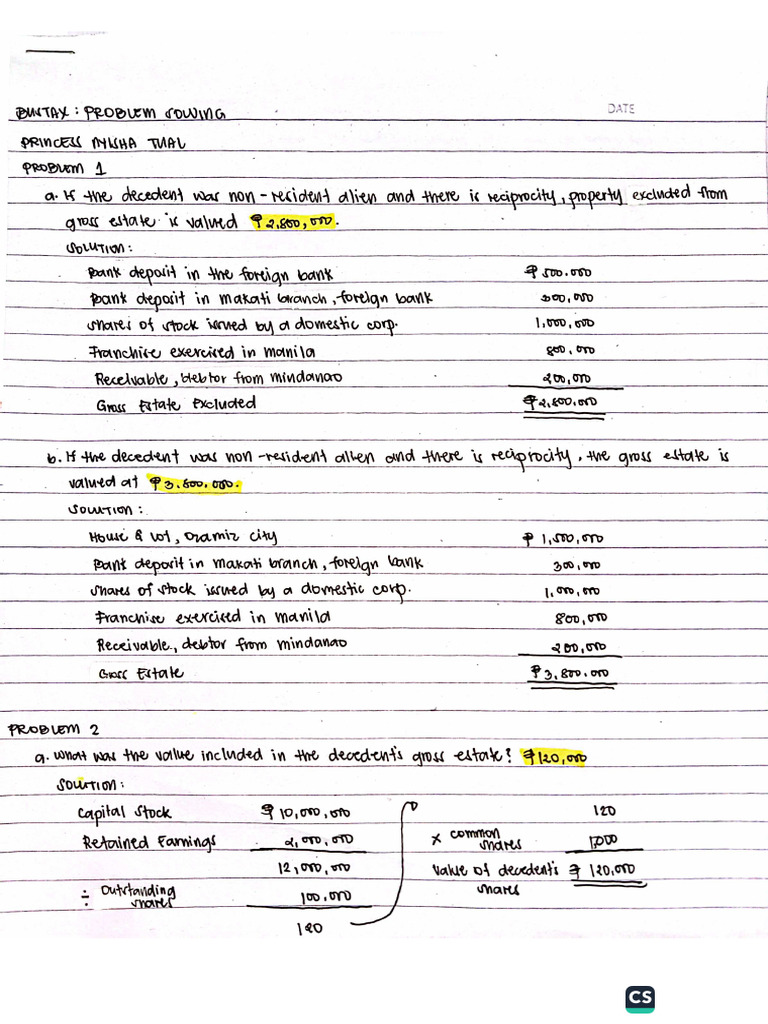 DATE
BUSTAX: PROBLEM SOLVING
PRINCESS TUAL
PROBLEM 1
a. If the decedent was non-resident alien and there is reciprocity, property excluded from
gross estate is valued ₱2,800,000.
SOLUTION:
Bank deposit in the foreign bank ₱500.000
Bank deposit in makati branch, foreign bank 300,000
shares of stock issued by a domestic corp. 1,000,000
Franchise exercised in manila 800,000
Receivable, Debtor from mindanao 200,000
Gross Estate Excluded ₱2,800,000
b. If the decedent was non-resident alien and there is reciprocity, the gross estate is
valued at ₱3.800,000.
SOLUTION:
House & lot, Ozamiz city ₱1,500,000
Bank deposit in makati branch, foreign bank 300,000
shares of stock issued by a domestic corp. 1,000,000
Franchise exercised in manila 800,000
Receivable, debtor from mindanao 200,000
Gross Estate ₱3,800.000
PROBLEM 2
a. what was the value included in the decedent's gross estate? ₱120,000
SOLUTION:
Capital Stock ₱10,000,000
Retained Earnings 2,000,000
12,000,000
÷ Outstanding shares 100,000
120
120
x common shares 1,000
Value of decedent's shares ₱120,000
CS